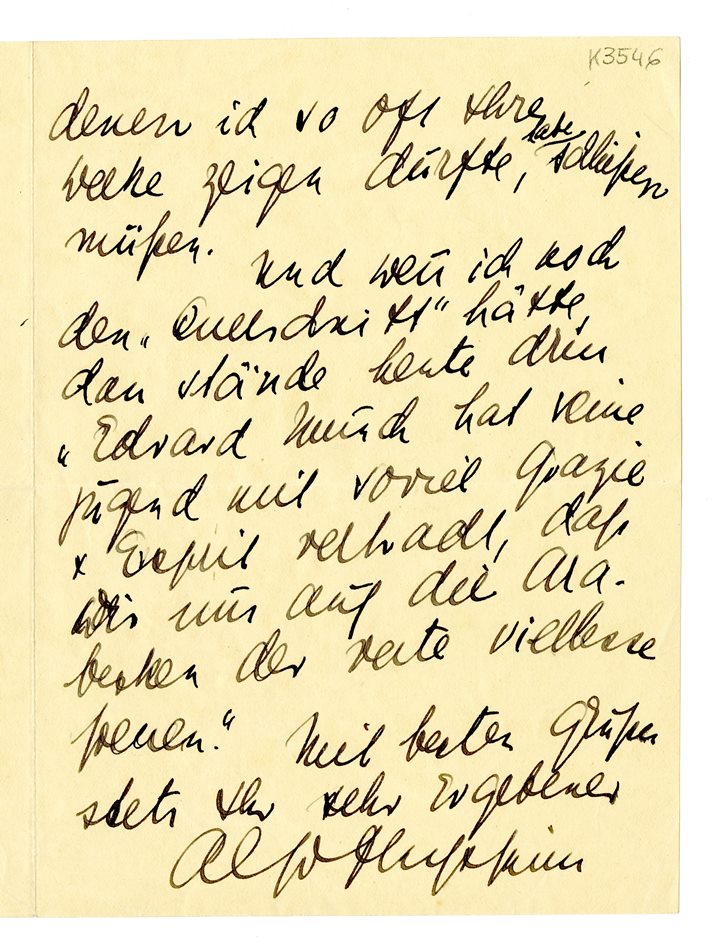 K3546
denen ich so oft Ihre
Werke zeigen durfte, habe schließen
müßen. Und wen̄ ich noch
den „Querschnitt“ hätte,
dan stände heute drin
„Edvard Munch hat seine
Jugend mit soviel Grazie
+ Esprit verbracht, daß
wir uns auf die Ara-
besken der verte vieillesse
freuen.“ Mit besten Grüßen
stets Ihr sehr Ergebener
Alfr Flechtheim